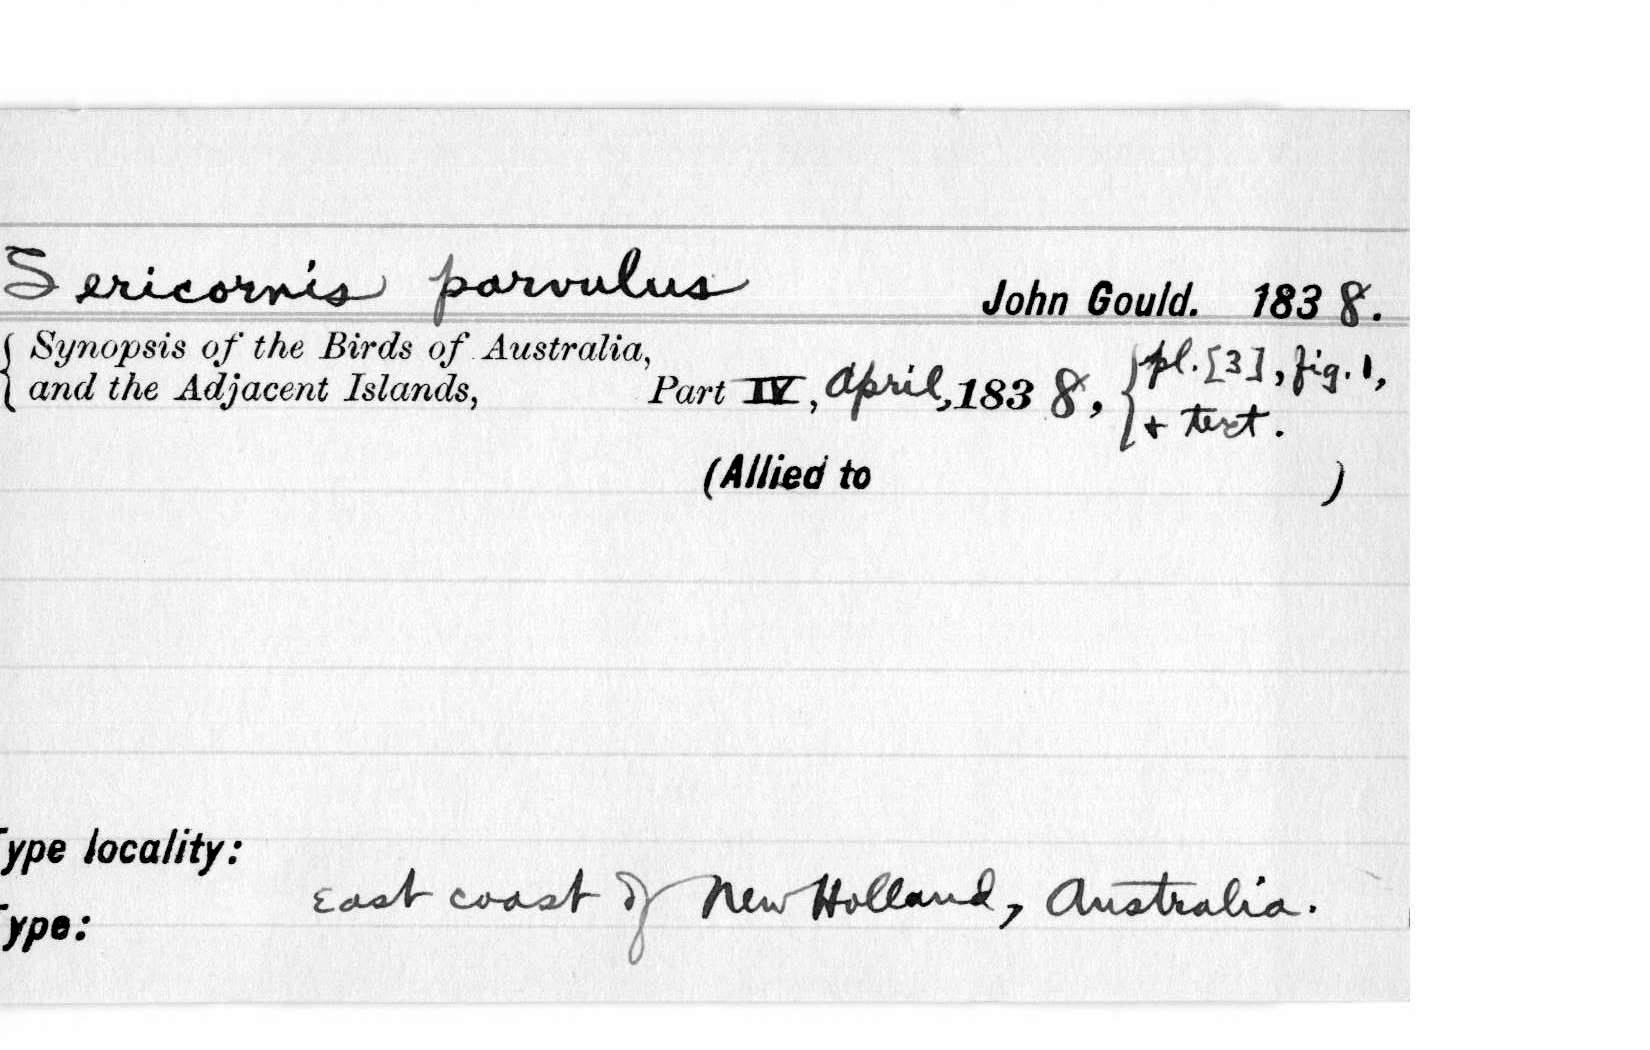 Sericornis parvulus John Gould. 1838.
{ Synopsis of the Birds of Australia,
and the Adjacent Islands, Part IV, April, 1838, { pl. [3], fig. 1,
+ text.
(Allied to )
Type locality:
East coast of New Holland, Australia.
Type: